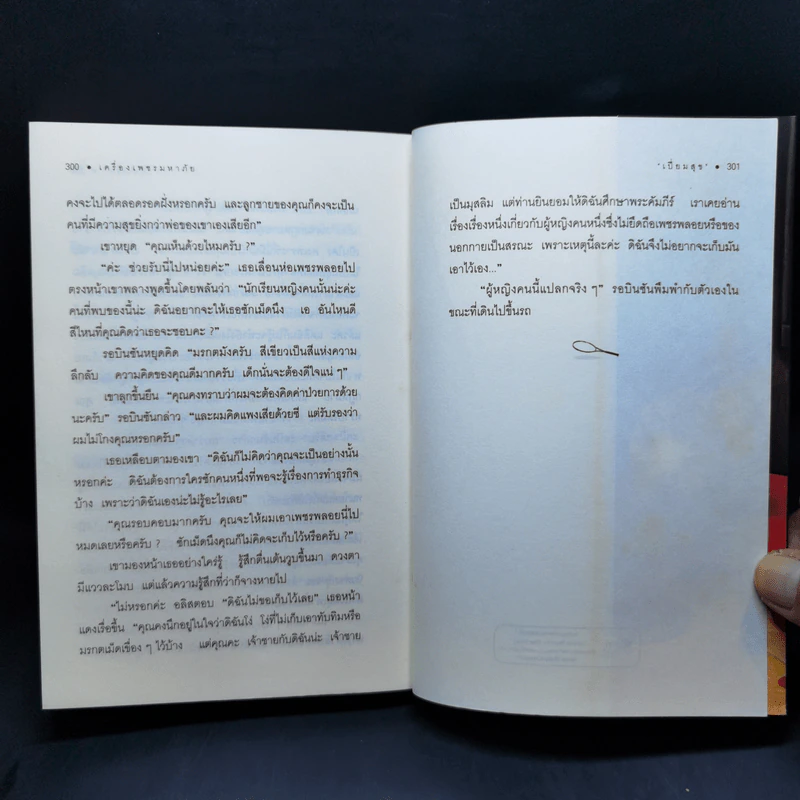 300 • เครื่องเพชรมหาภัย
คงจะไปได้ตลอดรอดฝั่งหรอกครับ และลูกชายของคุณก็คงจะเป็น
คนที่มีความสุขยิ่งกว่าพ่อของเขาเองเสียอีก"
เขาหยุด "คุณเห็นด้วยไหมครับ ?"
"ค่ะ ช่วยรับนี่ไปหน่อยค่ะ" เธอเลื่อนห่อเพชรพลอยไป
ตรงหน้าเขาพลางพูดขึ้นโดยพลันว่า "นักเรียนหญิงคนนั้นน่ะค่ะ
คนที่พบของนี้น่ะ ดิฉันอยากจะให้เธอซักเม็ดนึง เอ อันไหนดี
สีไหนที่คุณคิดว่าเธอจะชอบคะ ?"
รอบินซันหยุดคิด "มรกตมังครับ สีเขียวเป็นสีแห่งความ
ลึกลับ ความคิดของคุณดีมากครับ เด็กนั่นจะต้องดีใจแน่ ๆ"
เขาลุกขึ้นยืน "คุณคงทราบว่าผมจะต้องคิดค่าป่วยการด้วย
นะครับ" รอบินซันกล่าว "และผมคิดแพงเสียด้วยซี แต่รับรองว่า
ผมไม่โกงคุณหรอกครับ"
เธอเหลือบตามองเขา "ดิฉันก็ไม่คิดว่าคุณจะเป็นอย่างนั้น
หรอกค่ะ ดิฉันต้องการใครซักคนหนึ่งที่พอจะรู้เรื่องการทำธุรกิจ
บ้าง เพราะว่าดิฉันเองน่ะไม่รู้อะไรเลย"
"คุณรอบคอบมากครับ คุณจะให้ผมเอาเพชรพลอยนี่ไป
หมดเลยหรือครับ ? ซักเม็ดนึงคุณก็ไม่คิดจะเก็บไว้หรือครับ ?"
เขามองหน้าเธออย่างใคร่รู้ รู้สึกตื่นเต้นวูบขึ้นมา ดวงตา
มีแววละโมบ แต่แล้วความรู้สึกที่ว่าก็จางหายไป
"ไม่หรอกค่ะ อลิสตอบ "ดิฉันไม่ขอเก็บไว้เลย" เธอหน้า
แดงเรื่อขึ้น "คุณคงนึกอยู่ในใจว่าดิฉันโง่ โง่ที่ไม่เก็บเอาทับทิมหรือ
มรกตเม็ดเขื่อง ๆ ไว้บ้าง แต่คุณคะ เจ้าชายกับดิฉันน่ะ เจ้าชาย
"เปี่ยมสุข" • 301
เป็นมุสลิม แต่ท่านยินยอมให้ดิฉันศึกษาพระคัมภีร์ เราเคยอ่าน
เรื่องเรื่องหนึ่งเกี่ยวกับผู้หญิงคนหนึ่งซึ่งไม่ยึดถือเพชรพลอยหรือของ
นอกกายเป็นสรณะ เพราะเหตุนี้ละค่ะ ดิฉันจึงไม่อยากจะเก็บมัน
เอาไว้เอง..."
"ผู้หญิงคนนี้แปลกจริง ๆ" รอบินซันพึมพำกับตัวเองใน
ขณะที่เดินไปขึ้นรถ